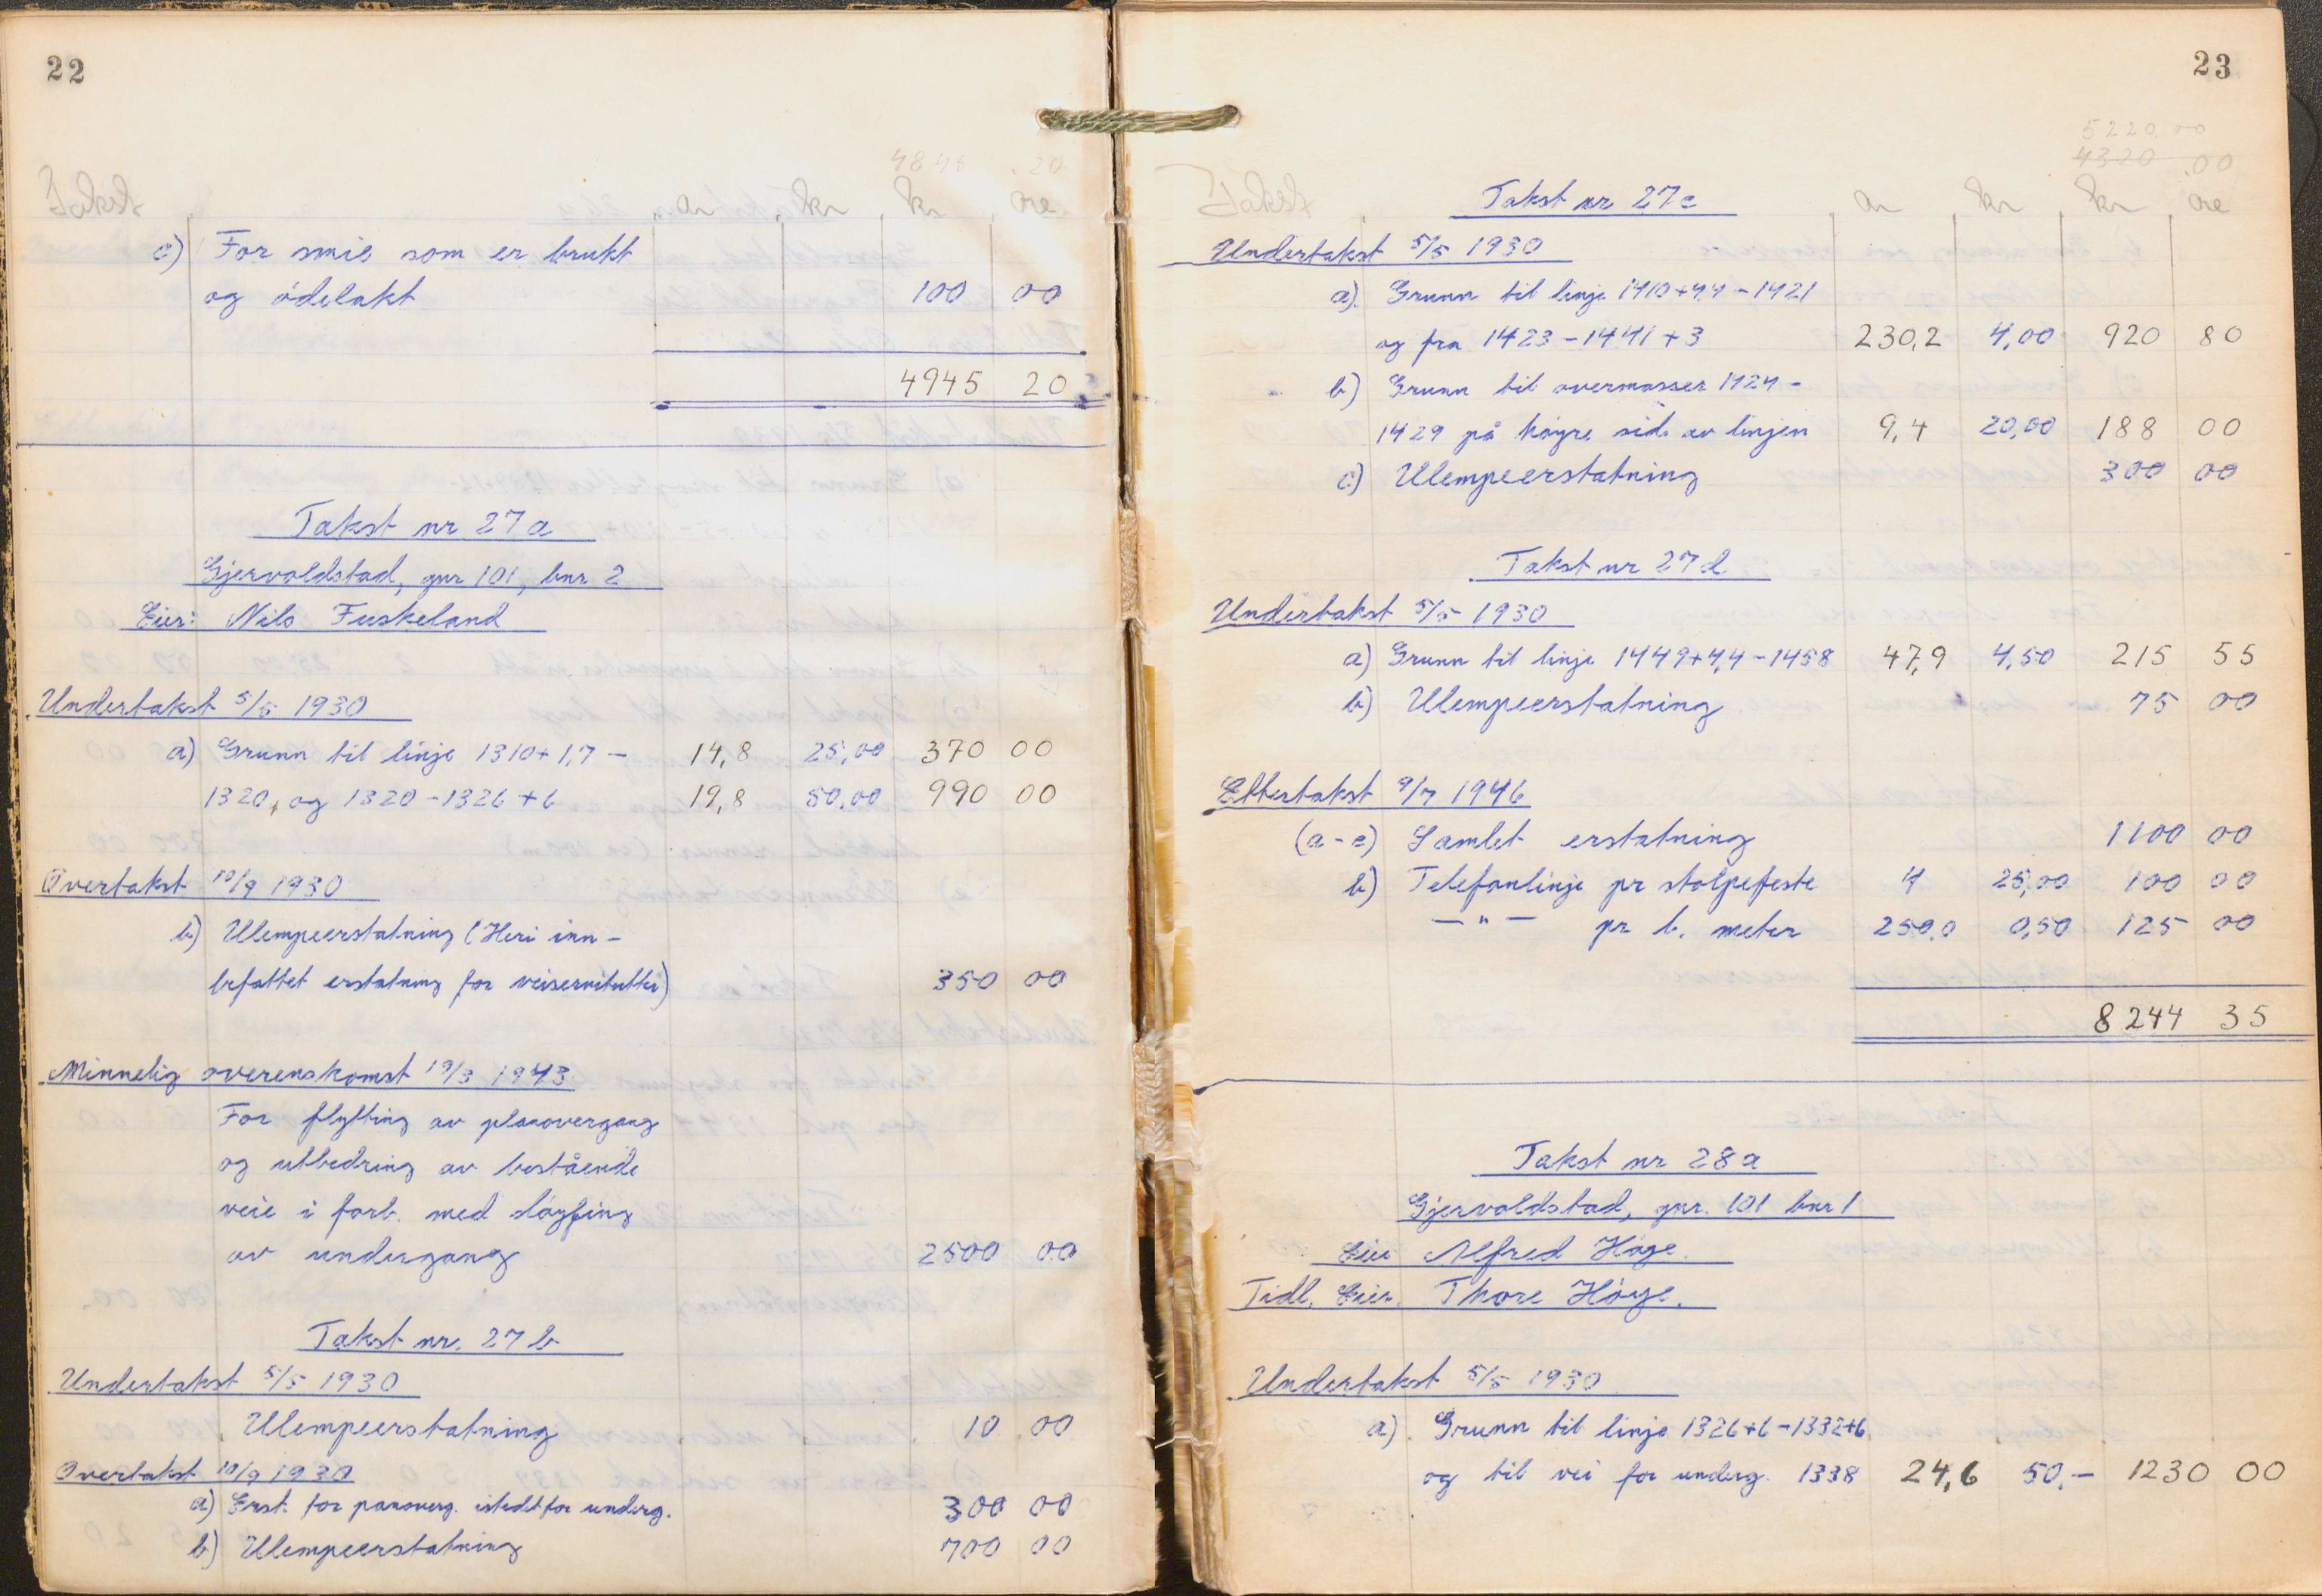 22
4845 .20
Takst ar kr kr øre
c) For smie som er brukt
og ödelakt 100 00
4945 20
Takst nr 27 a
Gjervoldstad, gnr 101, bnr 2
Eier: Nils Fuskeland
Undertakst 5/5 1930
a) Grunn til linje 1310+1,7 - 14,8 25,00 370 00
1320, og 1320-1326+6 19,8 50,00 990 00
Overtakst 10/9 1930
b) Ulempeerstatning (Heri inn-
befattet erstatning for veiservitutter) 350 00
Minnelig overenskomst 19/3 1943
For flytting av planovergang
og utbedring av bestående
veie i forb. med sløyfing
av undergang 2500 00
Takst nr. 27 b
Undertakst 5/5 1930
Ulempeerstatning 10 00
Overtakst 10/9 1930
a) Erst. for panoverg. istedet for underg. 300 00
b) Ulempeerstatning 700 00
23
5220.00
4320.00
Takst Takst nr 27c ar kr kr øre
Undertakst 5/5 1930
a). Grunn til linje 1410+4,4-1421
og fra 1423-1441+3 230,2 4,00 920 80
b) Grunn til overmasser 1424-
1429 på høyre side av linjen 9,4 20,00 188 00
c) Ulempeerstatning 300 00
Takst nr 27d
Undertakst 5/5 1930
a) Grunn til linje 1449+4,4-1458 47,9 4,50 215 55
b) Ulempeerstatning 75 00
Ettertakst 9/7 1946
(a-e) Samlet erstatning 1100 00
b) Telefonlinje pr stolpefeste 4 25,00 100 00
-"- pr l. meter 250,0 0,50 125 00
8244 35
Takst nr 28a
Gjervoldstad, gnr. 101 bnr 1
Eier Alfred Høge.
Tidl. Eier. Thore Höye.
Undertakst 5/5 1930
a). Grunn til linje 1326+6-1332+6
og til vei for underg. 1338 24,6 50,- 1230 00